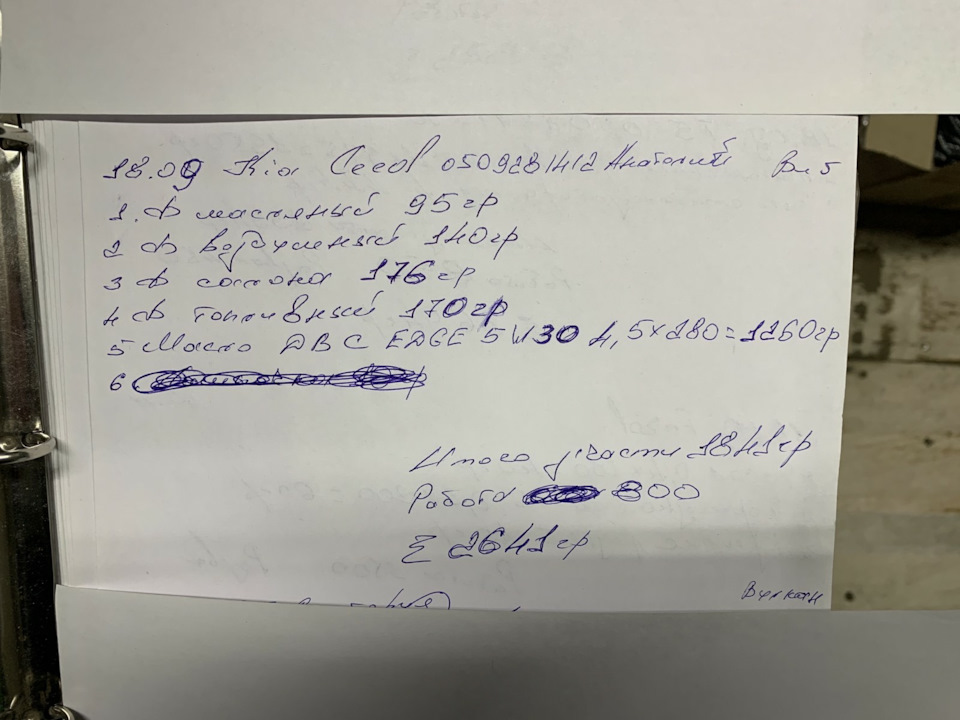 18.09 Kia Ceed 0509281412 Анатолий
1. Ф масляный 95 гр
2 Ф воздушный 140 гр
3 Ф салона 176 гр
4 Ф топливный 170 гр
5 Масло ДВС EDGE 5W30 4,5×280=1260 гр
6
Итого з/части 1841 гр
Работа 800
Σ 2641 гр